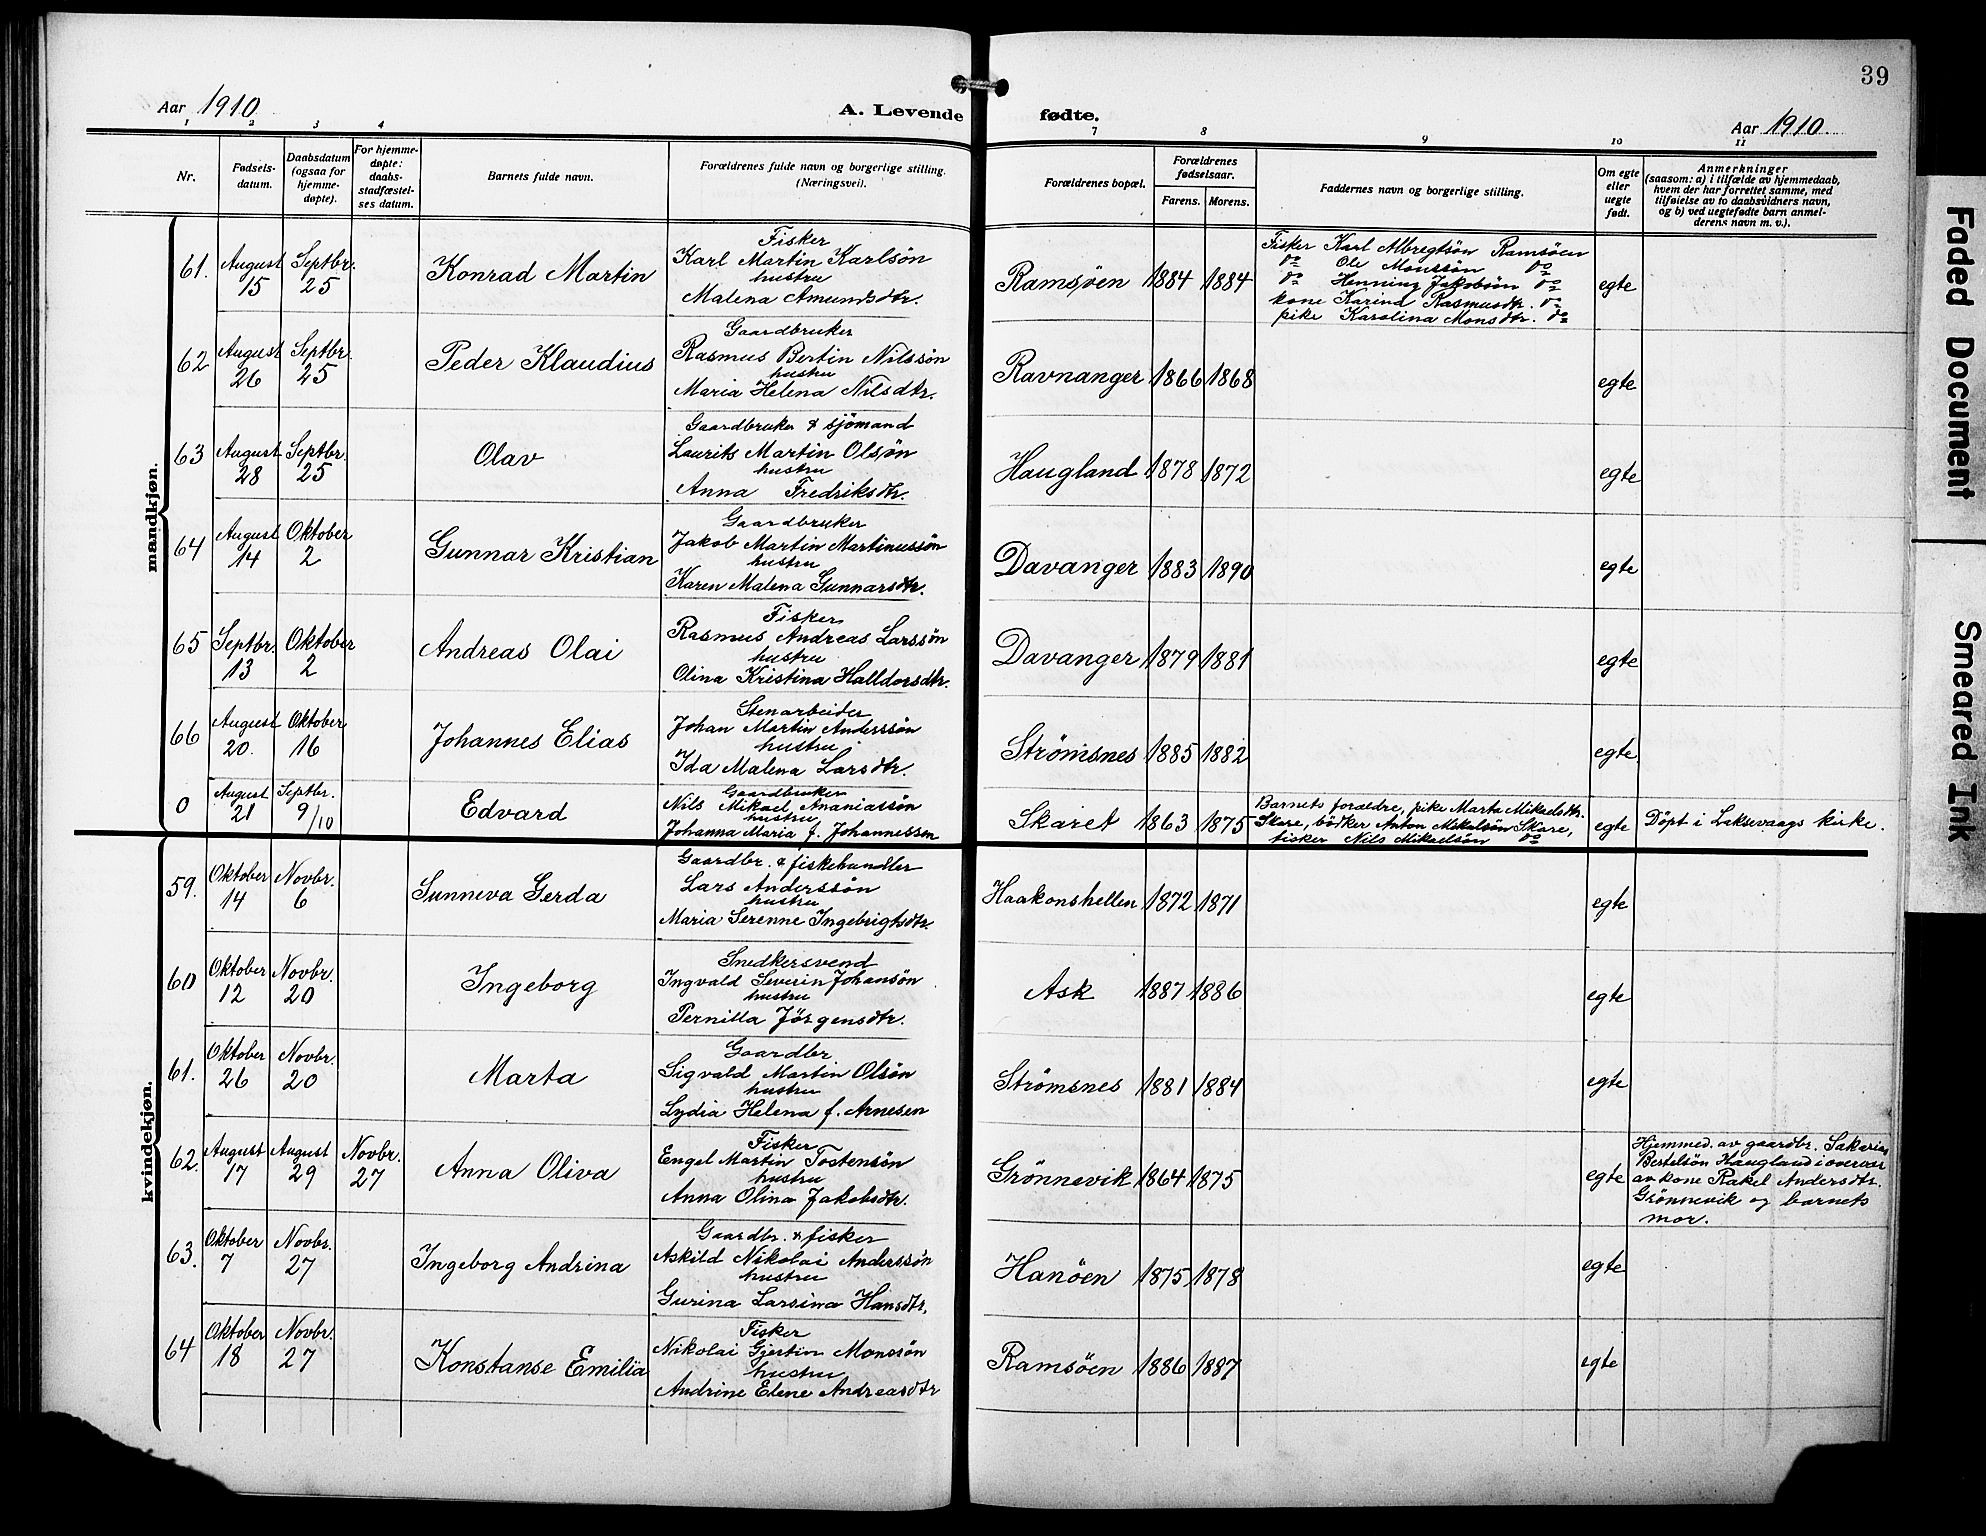 39
Aar 1910.
A. Levende fødte.
Aar 1910.
1 2 3 4 7 8 9 10 11
Nr.
Fødsels-
datum.
Daabsdatum
(ogsaa for
hjemme-
døpte).
For hjemme-
døpte:
daabs-
stadfæstel-
ses datum.
Barnets fulde navn.
Forældrenes fulde navn og borgerlige stilling.
(Næringsvei).
Forældrenes bopæl.
Forældrenes
fødselsaar.
Farens. Morens.
Faddernes navn og borgerlige stilling.
Om egte
eller
uegte
født.
Anmerkninger
(saasom: a) i tilfælde av hjemmedaab,
hvem der har forrettet samme, med
tilføielse av to daabsvidners navn,
og b) ved uegtefødte barn anmel-
derens navn m. v.).
mandkjøn.
61. August 15 Septbr. 25 Konrad Martin
Fisker
Karl Martin Karlsön
hustru
Malena Amundsdtr.
Ramsöen 1884 1884
Fisker Karl Albregtsön Ramsöen
do Ole Monssön do
do Henning Jakobsön do
kone Karina Rasmusdtr. do
pike Karolina Monsdtr. do
egte
62 August 26 Septbr. 25 Peder Klaudius
Gaardbruker
Rasmus Bertin Nilssön
hustru
Maria Helena Nilsdtr.
Ravnanger 1866 1868 egte
63 August 28 Septbr. 25 Olav
Gaardbruker & sjömand
Laurits Martin Olsön
hustru
Anna Fredriksdtr.
Haugland 1878 1872 egte
64 August 14 Oktober 2 Gunnar Kristian
Gaardbruker
Jakob Martin Martinussön
hustru
Karen Malena Gunnarsdtr.
Davanger 1883 1890 egte
65 Septbr. 13 Oktober 2 Andreas Olai
Fisker
Rasmus Andreas Larssön
hustru
Olina Kristina Halldorsdtr.
Davanger 1879 1881 egte
66 August 20. Oktober 16 Johannes Elias
Stenarbeider
Johan Martin Anderssön
hustru
Ida Malena Larsdtr.
Strömsnes 1885 1882 egte
0 August 21 Septbr. 9/10 Edvard
Gaardbruker
Nils Mikael Ananiassön
hustru
Johanna Maria f. Johannessen
Skaret 1863 1875
Barnets forældre, pike Marta Mikaelsdtr.
Skare, bödker Anton Mikalsön Skare,
fisker Nils Mikaelsön do
egte Döpt i Laksevaags kirke.
kvindekjøn.
59. Oktober 14 Novbr. 6 Sunneva Gerda
Gaardbr. & fiskehandler
Lars Anderssön
hustru
Maria Serenne Ingebrigtsdtr.
Haakonshellen 1872 1871 egte
60 Oktober 12 Novbr. 20 Ingeborg
Snedkersvend
Ingvald Severin Johansön
hustru
Pernilla Jörgensdtr.
Ask 1887 1886 egte
61. Oktober 26 Novbr. 20 Marta
Gaardbr
Sigvald Martin Olsön
hustru
Lydia Helena f. Arnesen
Strömsnes 1881 1884 egte
62. August 17 August 29 Novbr. 27 Anna Oliva
Fisker
Engel Martin Tostensön
hustru
Anna Olina Jakobsdtr.
Grönnevik 1864 1875 egte
Hjemmed. av gaardbr. Sakarias
Bertelsön Haugland i overvær
av kone Rakel Andersdtr.
Grönnevik og barnets
mor.
63. Oktober 7 Novbr. 27 Ingeborg Andrina
Gaardbr. & fisker
Askild Nikolai Anderssön
hustru
Gurina Larsina Hansdtr.
Hanöen 1875 1878 egte
64 Oktober 18 Novbr. 27 Konstanse Emilia
Fisker
Nikolai Gjertin Monssön
hustru
Andrine Elene Andreasdtr
Ramsöen 1886 1887 egte
Faded Document
Smeared Ink